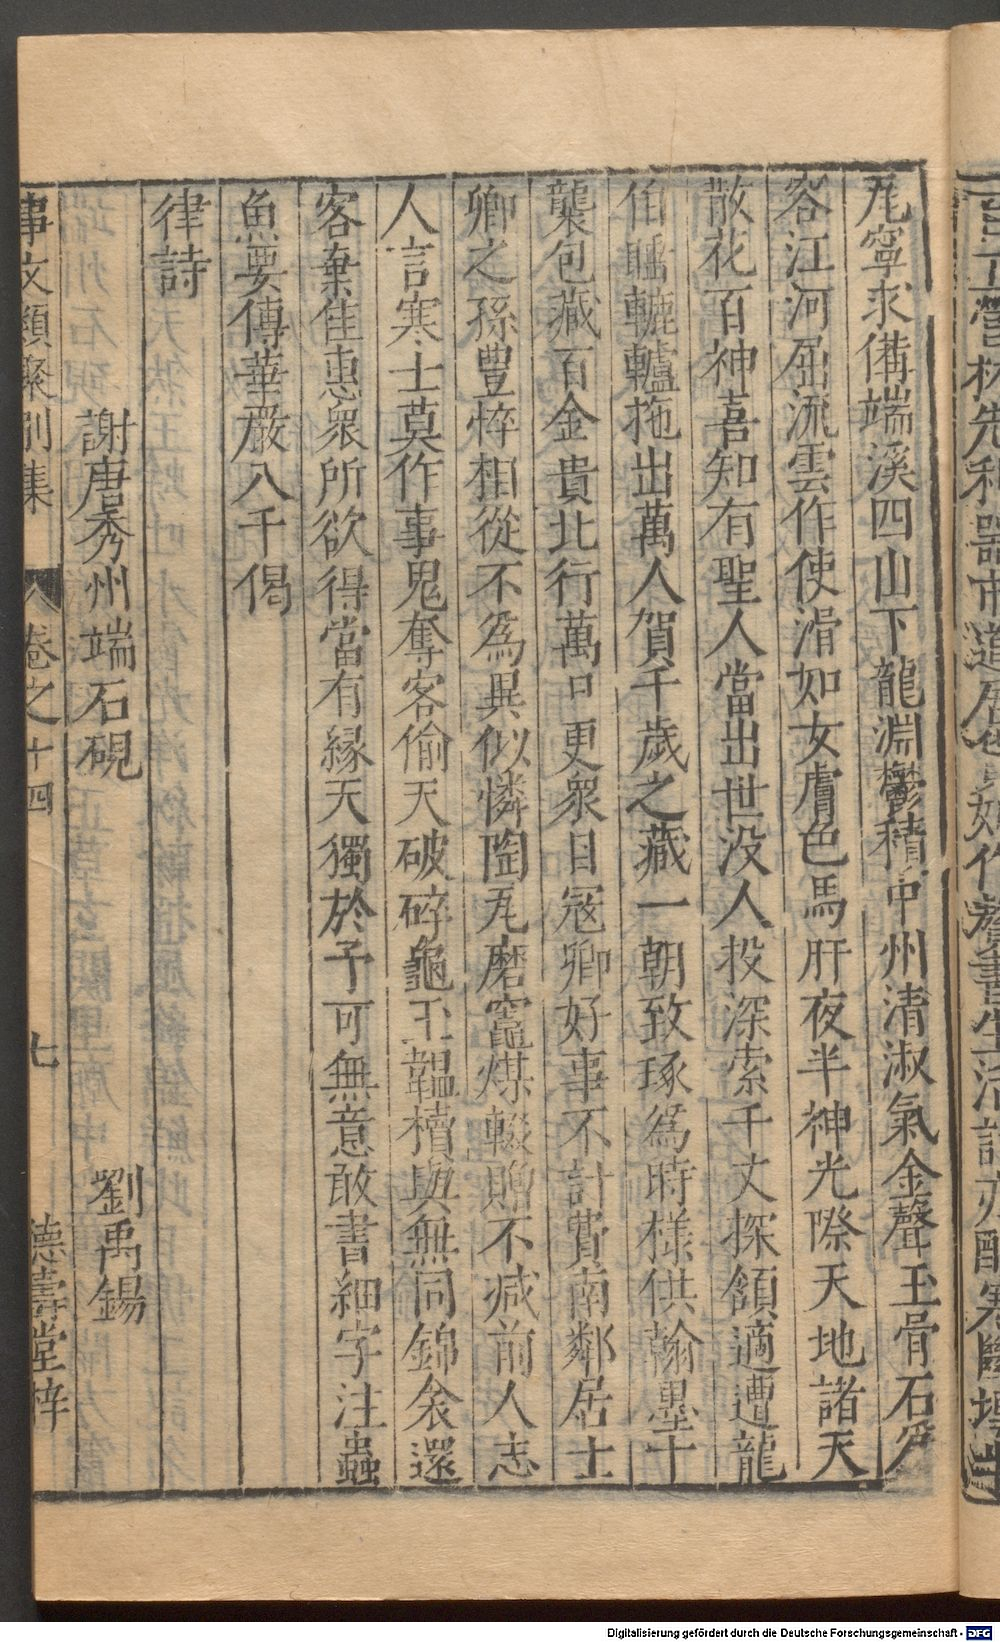 尾寧求備端溪四山下龍淵鬱積中州清淑氣金聲玉骨石為
容江河屈流雲作使滑如女膚色馬肝夜半神光際天地諸天
散花百神喜知有聖人當出世没人投深索千丈探頷適遭龍
伯睡轆轤拖出萬人賀千歲之藏一朝致琢為時様供翰墨十
襲包藏百金貴北行萬口更衆目冦卿好事不計貲南鄰居士
卿之孫豊悴相從不為異似憐陶瓦磨竈煤輟贈不减前人志
人言寒士莫作事鬼奪客偷天破碎龜玉韞櫝與無同錦衾還
客棄佳惠衆所欲得當有縁天獨於予可無意敢書細字注蟲
魚要傳華嚴八千偈
律詩
謝唐秀州端石硯 劉禹錫
事文類聚別集 卷之十四 七 德壽堂梓
Digitalisierung gefördert durch die Deutsche Forschungsgemeinschaft - DFG